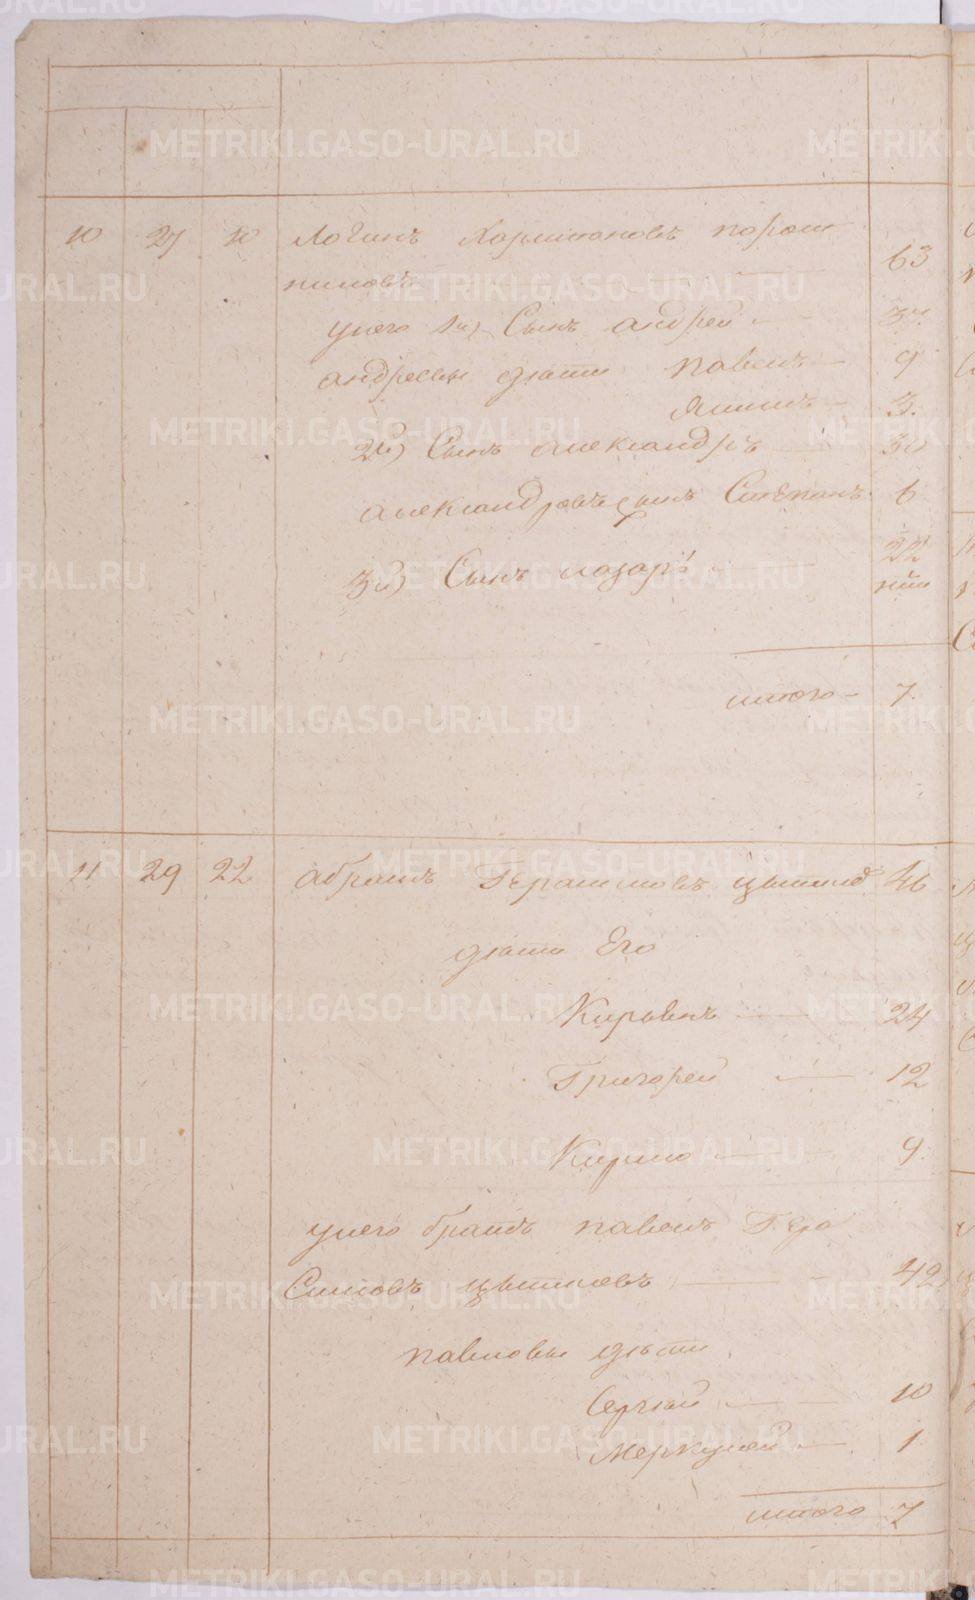 10 27 10 Логинъ Харитоновъ
63
у него 1й) Сынъ андрей 37
андреевы дѣти павелъ 9
3
2й) Сынъ александръ 30
александровъ сынъ Степанъ 6
3й) Сынъ лазарь 22
итого 7
11 29 22 абрамъ Герасимовъ 46
дѣти Его
24
Григорей 12
Кирило 9
у него братъ павелъ Гера
Симовъ 42
павловы дѣти
Сергей 10
Меркулей 1
итого 7
METRIKI.GASO-URAL.RU